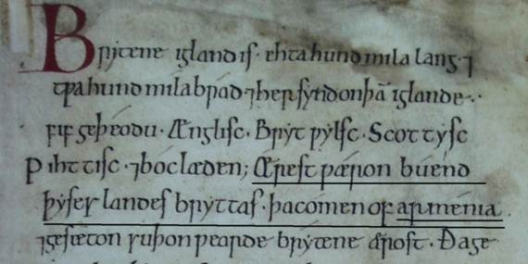 Brytene igland is ehta hund mila lang. ⁊
tƿa hund mila brad ⁊ her synd on þã iglande
fif geþeodu. Ænglisc. Brytƿylsc. Scottysc
Pihttisc. ⁊ boclæden; Ærest ƿæron buend
þyses landes bryttas. þa comen of armenia.
⁊ gesæton suþonƿearde brytene ærost. Ða ge